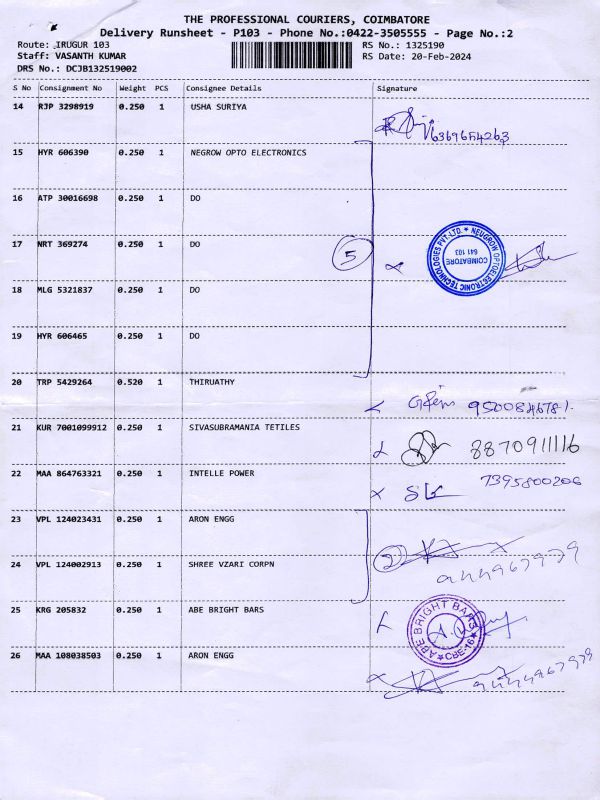 THE PROFESSIONAL COURIERS, COIMBATORE
Delivery Runsheet - P103 - Phone No.:0422-3505555 - Page No.:2
Route: IRUGUR 103 RS No.: 1325190
Staff: VASANTH KUMAR RS Date: 20-Feb-2024
DRS No.: DCJB132519002
S No Consignment No Weight PCS Consignee Details Signature
14 RJP 3298919 0.250 1 USHA SURIYA
6369654263
15 HYR 606390 0.250 1 NEGROW OPTO ELECTRONICS
16 ATP 30016698 0.250 1 DO
17 NRT 369274 0.250 1 DO 5
NEUGROW OPTOELECTRONIC TECHNOLOGIES PVT. LTD. * COIMBATORE 641 103
18 MLG 5321837 0.250 1 DO
19 HYR 606465 0.250 1 DO
20 TRP 5429264 0.520 1 THIRUATHY
21 KUR 7001099912 0.250 1 SIVASUBRAMANIA TETILES 8870911116
22 MAA 864763321 0.250 1 INTELLE POWER 7395800206
23 VPL 124023431 0.250 1 ARON ENGG
2
24 VPL 124002913 0.250 1 SHREE VZARI CORPN
25 KRG 205832 0.250 1 ABE BRIGHT BARS
ABE BRIGHT BARS * CBE-16 *
26 MAA 108038503 0.250 1 ARON ENGG